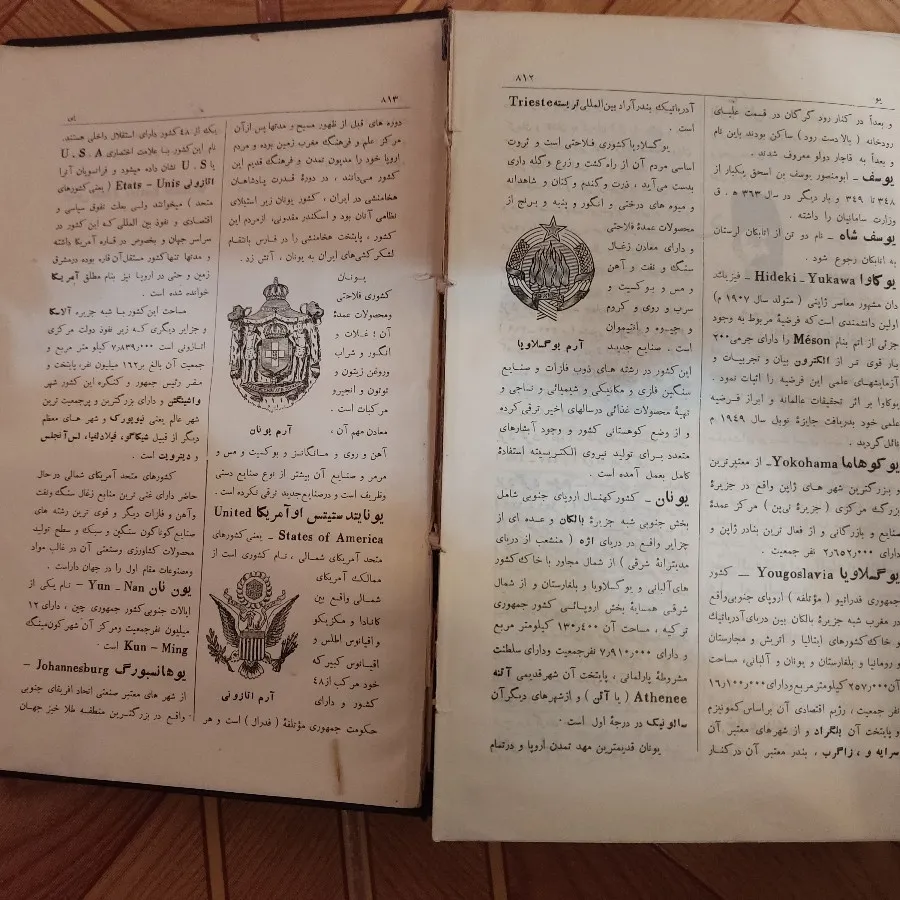 ۸۱۲
یو
و بعداً در کنار رود گرگان در قسمت علیای
رودخانه ( بالا دست رود ) ساکن بودند باین نام
و بعداً به قاجار دولو معروف شدند .
یوسف ـ ابومنصور یوسف بن اسحق یکبار از
۳۴۸ تا ۳۴۹ و بار دیگر در سال ۳۶۳ ه . ق
وزارت سامانیان را داشته .
یوسف شاه ـ نام دو تن از اتابکان لرستان
به اتابکان رجوع شود .
یوکاوا Hideki – Yukawa ـ فیزیک
دان مشهور معاصر ژاپنی ( متولد سال ۱۹۰۷ م )
اولین دانشمندی است که فرضیهٔ مربوط به وجود
جزئی از اتم بنام Méson را دارای جرمی ۲۰۰
بار قوی تر از الکترون بیان و تجربیات و
آزمایشهای علمی این فرضیه را اثبات نمود .
یوکاوا بر اثر تحقیقات عالمانه و ابراز فرضیه
علمی خود بدریافت جایزهٔ نوبل سال ۱۹۴۹ م
نائل گردید .
یوکوهاما Yokohama ـ از معتبرترین
و بزرگترین شهر های ژاپن واقع در جزیرهٔ
بزرگ مرکزی ( جزیرهٔ نی‌پن ) مرکز عمدهٔ
صنایع و بازرگانی و از فعال ترین بنادر ژاپن و
دارای ۲٫۶۵۲٫۰۰۰ نفر جمعیت .
یوگسلاویا Yougoslavia ـ کشور
جمهوری فدراتیو ( مؤتلفه ) اروپای جنوبی واقع
در مغرب شبه جزیرهٔ بالکان بین دریای آدریاتیک
و خاک کشورهای ایتالیا و اتریش و مجارستان
و رومانیا و بلغارستان و یونان و آلبانی، مساحت
آن ۲۵۷٫۰۰۰ کیلومتر مربع و دارای ۱۶٫۱۰۰٫۰۰۰
نفر جمعیت ، رژیم اقتصادی آن براساس کمونیزم
و پایتخت آن بلگراد و از شهرهای معتبر آن
سرایه و ، زاگرب ، بندر معتبر آن در کنار
آدریاتیک بندر آزاد بین المللی تریسته Trieste
است .
یوگسلاویا کشوری فلاحتی است و ثروت
اساسی مردم آن از راه کشت و زرع و گله داری
بدست می‌آید ، ذرت و گندم و کتان و شاهدانه
و میوه های درختی و انگور و پنبه و برنج از
محصولات عمدهٔ فلاحتی
و دارای معادن زغال
سنگ و نفت و آهن
و مس و بوکسیت و
سرب و روی و کروم
و جیوه و آنتیموان
است . صنایع جدید
آرم یوگسلاویا
این کشور در رشته های ذوب فلزات و صنایع
سنگین فلزی و مکانیکی و شیمیائی و نساجی و
تهیهٔ محصولات غذائی درسالهای اخیر ترقی کرده
و از وضع کوهستانی کشور و وجود آبشارهای
متعدد برای تولید نیروی الکتریسیته استفادهٔ
کامل بعمل آمده است .
یونان ـ کشور کهنسال اروپای جنوبی شامل
بخش جنوبی شبه جزیرهٔ بالکان و عده ای از
جزایر واقع در دریای اژه ( منشعب از دریای
مدیترانهٔ شرقی ) از شمال مجاور با خاک کشور
های آلبانی و یوگلاویا و بلغارستان و از شمال
شرقی همسایهٔ بخش اروپائی کشور جمهوری
ترکیه ، مساحت آن ۱۳۰٫۴۰۰ کیلومتر مربع
و دارای ۷٫۹۱۰٫۰۰۰ نفرجمعیت ودارای سلطنت
مشروطهٔ پارلمانی ، پایتخت آن شهرقدیمی آتنه
Athenee ( یا آتن ) و ازشهرهای دیگر آن
سالونیک در درجهٔ اول است .
یونان قدیمترین مهد تمدن اروپا و درتمام
۸۱۳
دوره های قبل از ظهور مسیح و مدتها پس از آن
مرکز علم و فرهنگ مغرب زمین بوده و مردم
اروپا خود را مدیون تمدن و فرهنگ قدیم این
کشور می‌دانند ، در دورهٔ قدرت پادشاهان
هخامنشی در ایران ، کشور یونان زیر استیلای
نظامی آنان بود و اسکندر مقدونی، ازمردم این
کشور ، پایتخت هخامنشی را در فارس بانتقام
لشکر کشی‌های ایران به یونان ، آتش زد .
یونان
کشوری فلاحتی
ومحصولات عمدهٔ
آن : غلات و
انگور و شراب
وروغن زیتون و
توتون و انجیرو
مرکبات است .
معادن مهم آن ،
آرم یونان
آهن و روی و مانگانز و بوکسیت و مس و
مرمر و صنایع آن بیشتر از نوع صنایع دستی
وظریف است و درصنایع جدید ترقی نکرده است .
یونایتد ستیتس اوآمریکا United
States of America ـ یعنی کشورهای
متحد آمریکای شمالی ، نام کشوری است از
ممالک آمریکای
شمالی واقع بین
کانادا و مکزیکو
و اقیانوس اطلس و
اقیانوس کبیر که
خود مرکب از ۴۸
کشور و دارای
آرم اتازونی
حکومت جمهوری مؤتلفهٔ ( فدرال ) است و هر
یک از ۴۸ کشور دارای استقلال داخلی هستند.
نام این کشور بـا علامت اختصاری U . S . A
یا U . S نشان داده میشود و فرانسویان آنرا
اتازونی Etats – Unis ( یعنی کشورهای
متحد ) میخوانند ولی بعلت نفوق سیاسی و
اقتصادی و نفوق بین المللی که این کشور در
سراسر جهان و بخصوص در قاره آمریکا داشته
و مدتها تنها کشور مستقل آن قاره بوده درمشرق
زمین و حتی در اروپا نیز بنام مطلق آمریکا
خوانده شده است .
مساحت این کشور بـا شبه جزیره آلاسکا
و جزایر دیگری که زیر نفوذ دولت مرکزی
اتازونی است ۷٫۸۳۹٫۰۰۰ کیلو متر مربع و
جمعیت آن بالغ بر ۱۶۲ میلیون نفر، پایتخت و
مقر رئیس جمهور و کنگره این کشور شهر
واشینگتن و دارای بزرگترین و پرجمعیت ترین
شهر عالم یعنی نیویورک و شهر های معظم
دیگر از قبیل شیکاگو، فیلادلفیا، لس‌آنجلس
و دیترویت است .
کشورهای متحد آمریکای شمالی در حال
حاضر دارای غنی ترین منابع زغال سنگ ونفت
وآهن و فلزات دیگر و قوی ترین رشته های
صنایع گوناگون سنگین و سبک و سطح تولید
محصولات کشاورزی وصنعتی آن در غالب مواد
ومصنوعات مقام اول را در جهان داراست .
یون نان Yun – Nan ـ نام یکی از
ایالات جنوبی کشور جمهوری چین ، دارای ۱۲
میلیون نفرجمعیت ومرکز آن شهر کون‌مینگ
Kun – Ming است .
یوهانسبورگ Johannesburg ـ
از شهر های معتبر صنعتی اتحاد آفریقای جنوبی
واقع در بزرگترین منطقه طلا خیز جهان